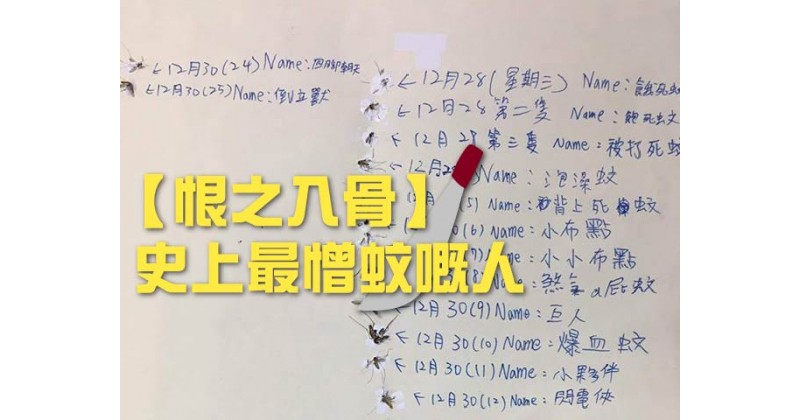 ←12月30(24)Name:四腳朝天
←12月30(25)Name:倒立獸
←12月28(星期三) Name:餓死蚊
←12月28 第二隻 Name:飽死蚊
←12月28 第三隻 Name:被打死蚊
←12月28 Name:泡澡蚊
12月 5) Name:背上死蚊
(6) Name:小布點
(7) Name:小小布點
Name:煞氣a屁蚊
12月30(9) Name:巨人
←12月30(10) Name:爆血蚊
←12月30(11) Name:小夥伴
←12月30(12) Name:閃電俠
【恨之入骨】
史上最憎蚊嘅人